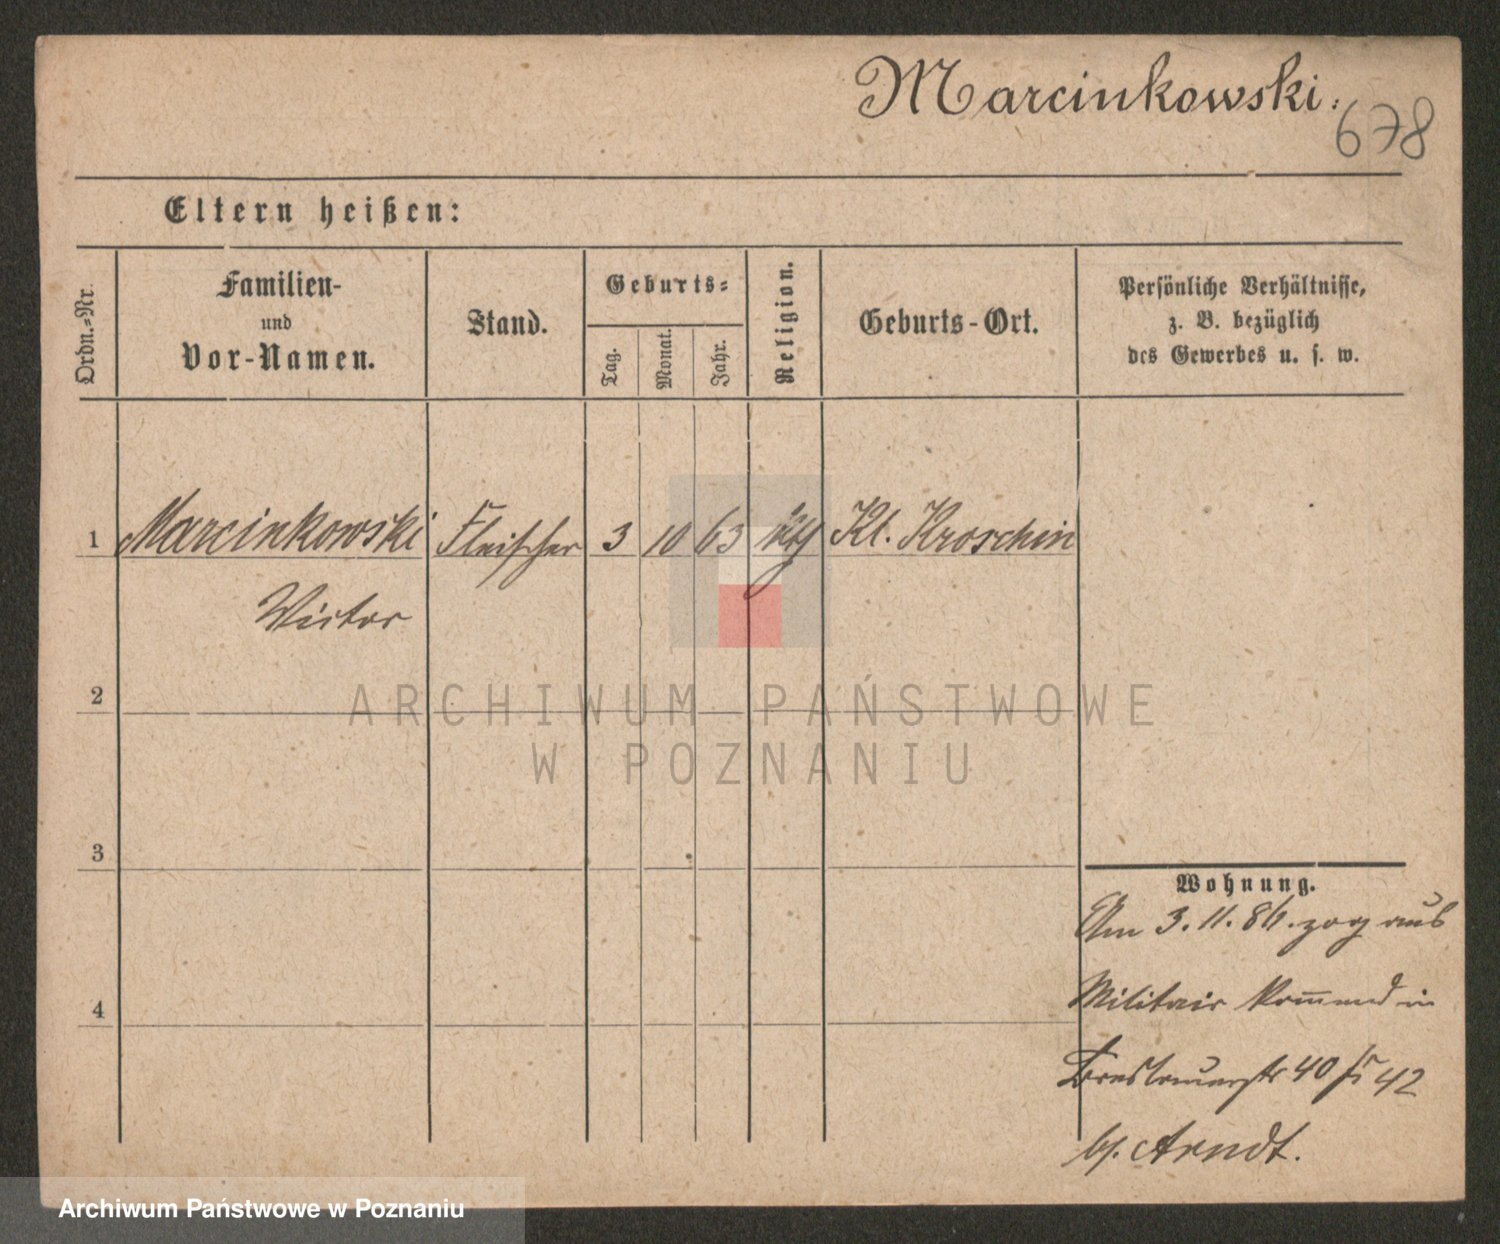 Marcinkowski.
678
Eltern heißen:
Ordn.=Nr.
Familien-
und
Vor-Namen.
Stand.
Geburts=
Tag.
Monat.
Jahr.
Religion.
Geburts-Ort.
Persönliche Verhältnisse,
z. B. bezüglich
des Gewerbes u. s. w.
1 Marcinkowski Fleischer 3 10 63 kth Kl. Kroschin
Victor
2
ARCHIWUM PAŃSTWOWE
W POZNANIU
3
Wohnung.
Am 3. 11. 86. zog aus
4
Militair in
40 42
bei Arndt.
Archiwum Państwowe w Poznaniu